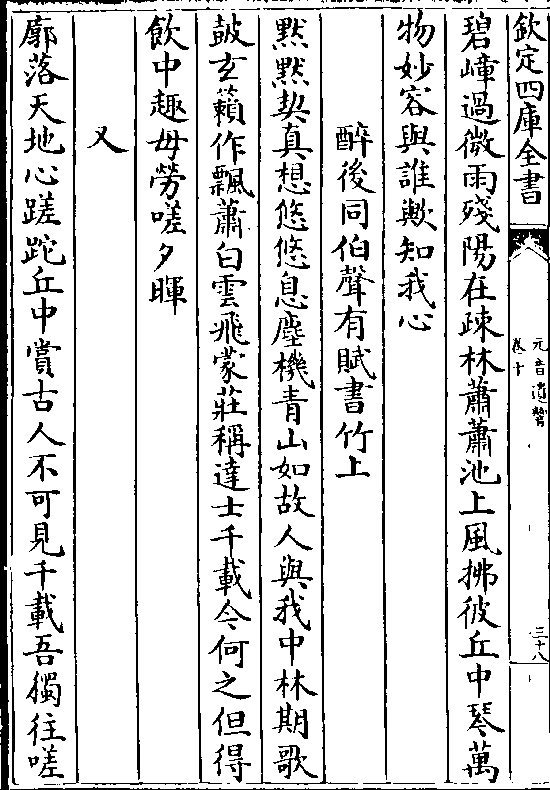 欽定四庫全書
元音遺響
卷十
三十八
碧嶂過微雨殘陽在疎林蕭蕭池上風拂彼丘中琴萬
物妙容與誰歟知我心
醉後同伯聲有賦書竹上
默默契真想悠悠息塵機青山如故人與我中林期歌
鼓玄籟作飄蕭白雲飛蒙莊稱達士千載今何之但得
飲中趣毋勞嗟夕暉
又
廓落天地心蹉跎丘中賞古人不可見千載吾獨往嗟